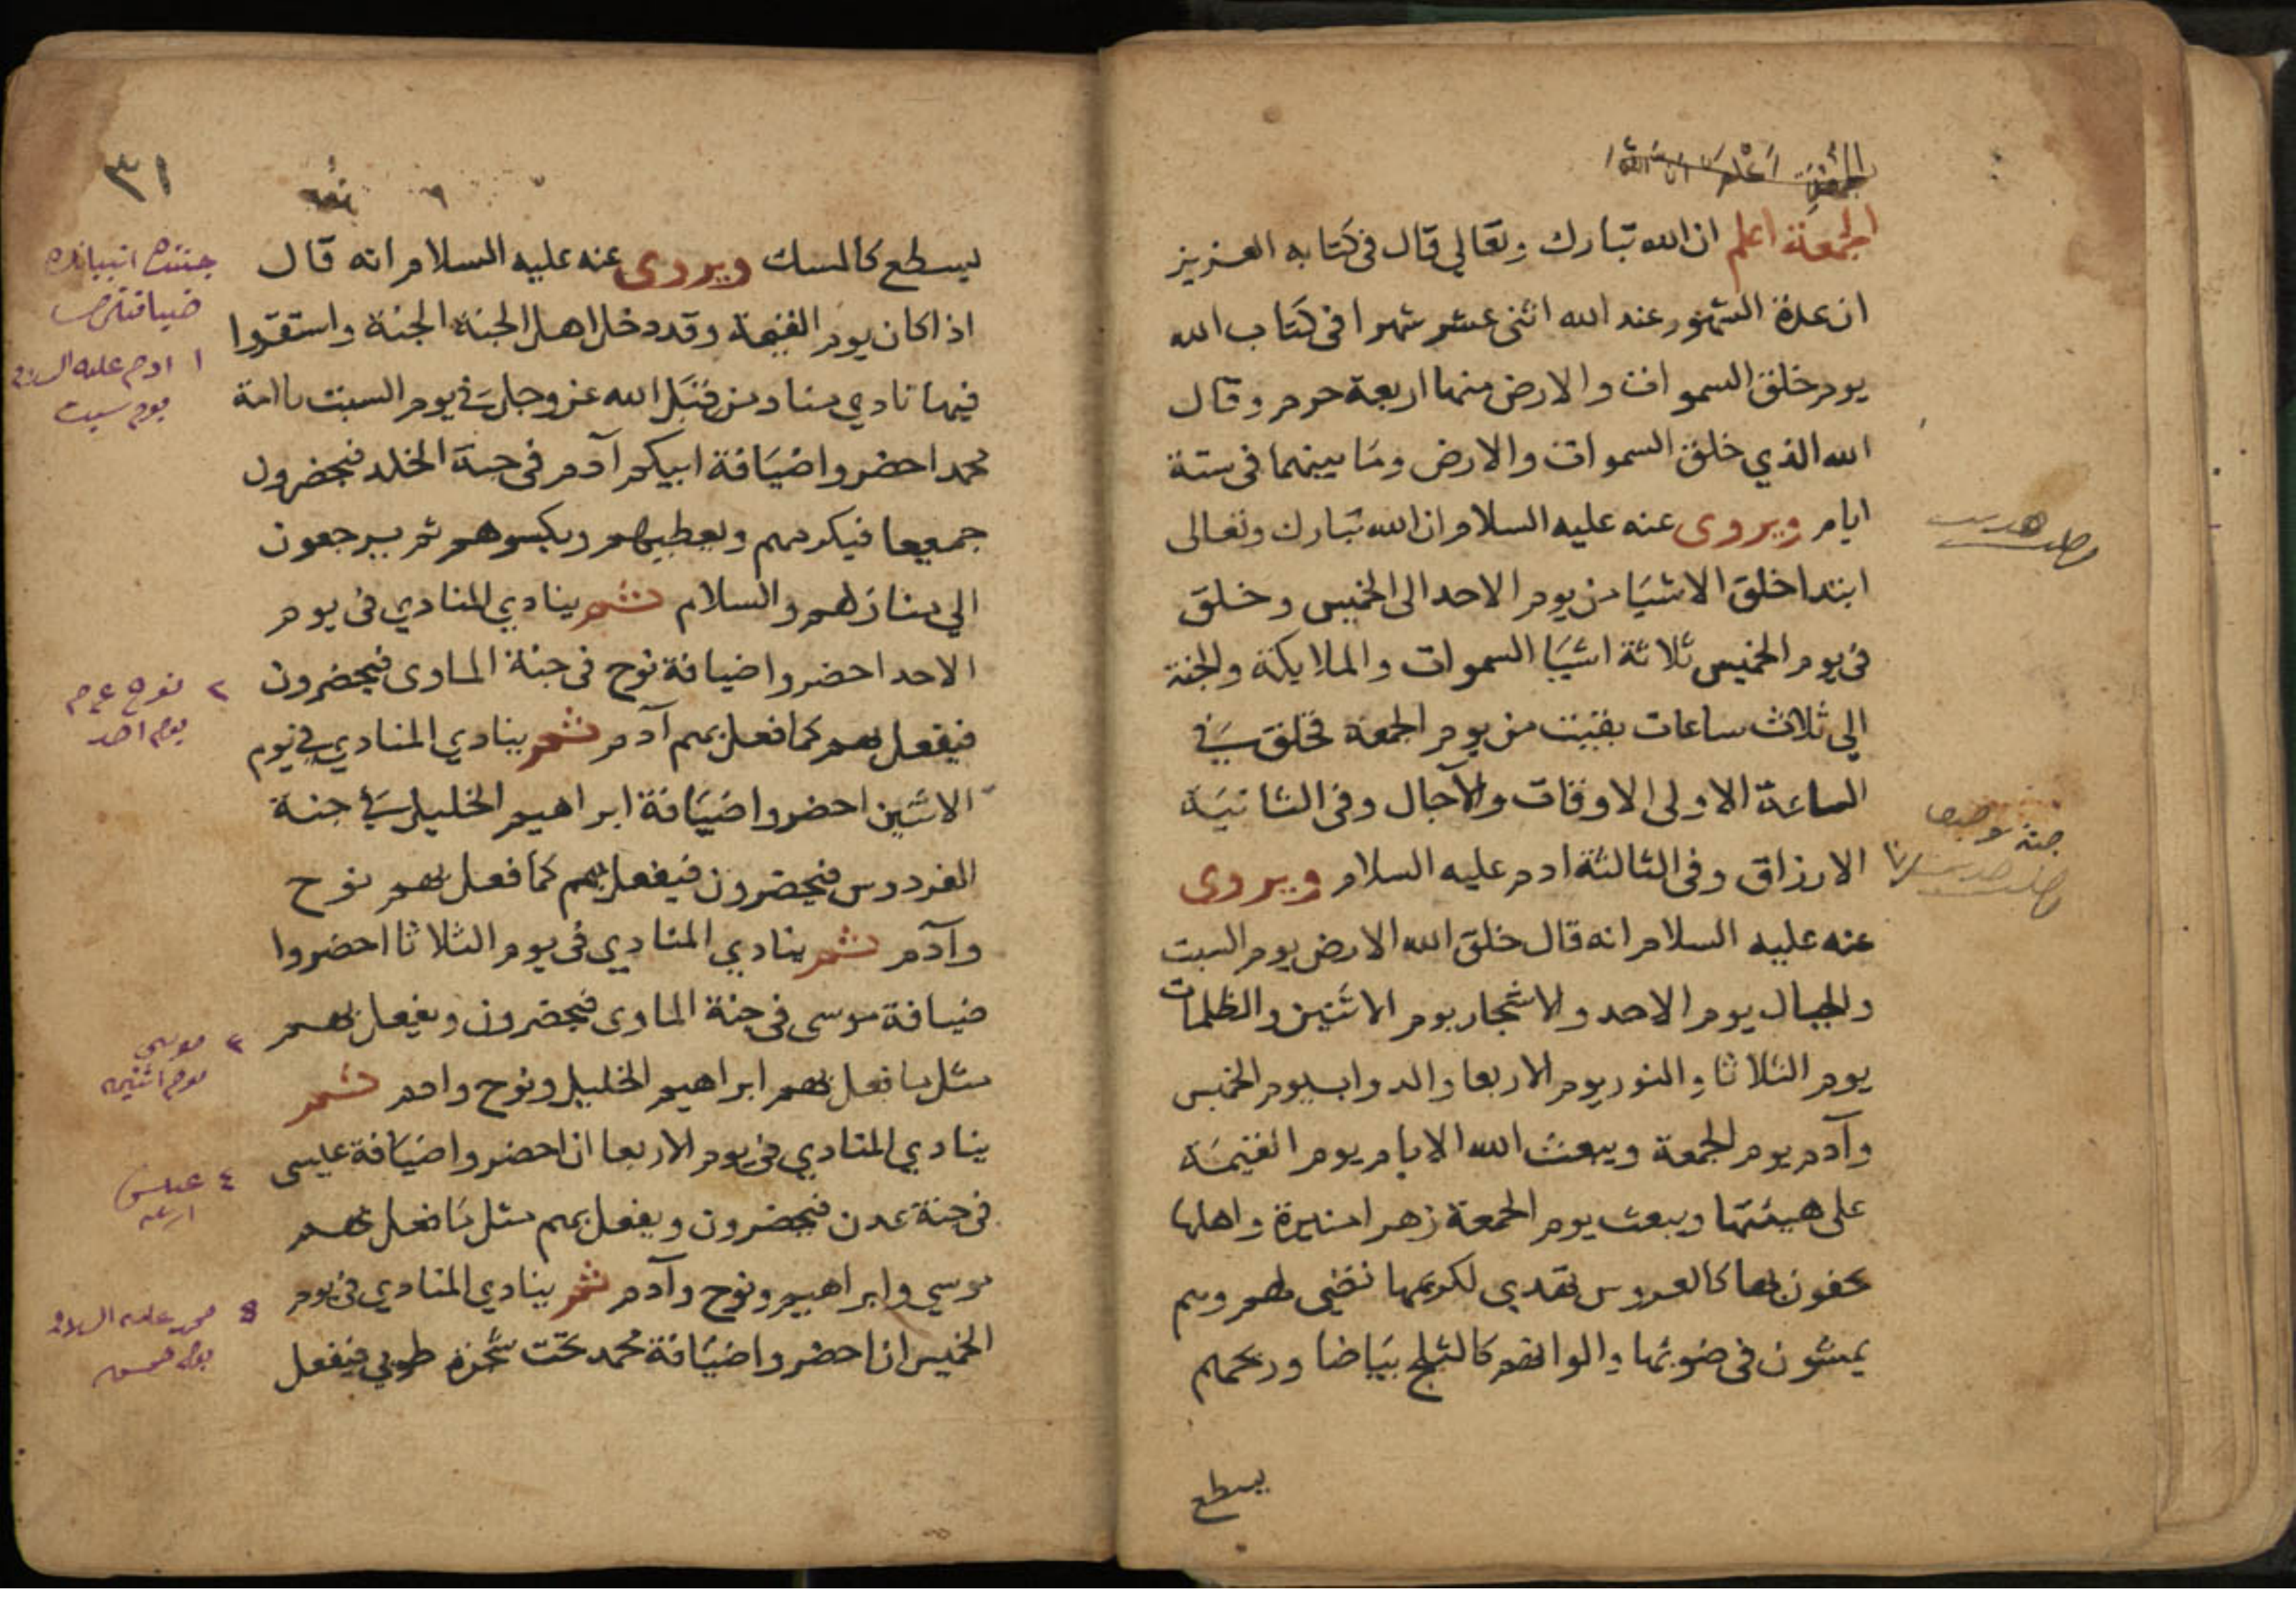 الجمعة اعلم ان الله
الجمعة اعلم ان الله تبارك وتعالي قال في كتابه العزيز
ان عدة الشهور عند الله اثنى عشر شهرا في كتاب الله
يوم خلق السموات والارض منها اربعة حرم وقال
الله الذي خلق السموات والارض وما بينهما في ستة
ايام ويروى عنه عليه السلام ان الله تبارك وتعالى
ابتدا خلق الاشيا من يوم الاحد الى الخميس وخلق
في يوم الخميس ثلاثة اشيا السموات والملايكة والجنة
الي ثلاث ساعات بقيت من يوم الجمعة فخلق في
الساعة الاولى الاوقات والآجال وفي الثانية
الارزاق وفي الثالثة ادم عليه السلام ويروى
عنه عليه السلام انه قال خلق الله الارض يوم السبت
والجبال يوم الاحد والاشجار يوم الاثنين والظلمات
يوم الثلاثا والنور يوم الاربعا والدواب يوم الخميس
وآدم يوم الجمعة ويبعث الله الايام يوم القيمة
على هيئتها ويبعث يوم الجمعة زهرا منيرة واهلها
يحفون بها كالعروس تهدي لكريمها تضي لهم وهم
يمشون في ضوئها والوانهم كالثلج بياضا وريحهم
يسطع
٣١
يسطع كالمسك ويروى عنه عليه السلام انه قال
اذا كان يوم القيمة وقد دخل اهل الجنة الجنة واستقروا
فيها نادي مناد من قبل الله عز وجل في يوم السبت يا امة
محمد احضروا ضيافة ابيكم آدم في جنة الخلد فيحضرون
جميعا فيكرمهم ويعطيهم ويكسوهم ثم يرجعون
الي منازلهم والسلام ثم ينادي المنادي في يوم
الاحد احضروا ضيافة نوح في جنة الماوى فيحضرون
فيفعل بهم كما فعل بهم آدم ثم ينادي المنادي في يوم
الاثنين احضروا ضيافة ابراهيم الخليل في جنة
الفردوس فيحضرون فيفعل بهم كما فعل بهم نوح
وآدم ثم ينادي المنادي في يوم الثلاثا احضروا
ضيافة موسى في جنة الماوى فيحضرون ويفعل بهم
مثل ما فعل بهم ابراهيم الخليل ونوح وادم ثم
ينادي المنادي في يوم الاربعا ان احضروا ضيافة عيسى
في جنة عدن فيحضرون ويفعل بهم مثل ما فعل بهم
موسي وابراهيم ونوح وآدم ثم ينادي المنادي في يوم
الخميس ان احضروا ضيافة محمد تحت شجرة طوبي فيفعل
جنتده انبيانك
ضيافتلري
١ ادم عليه السلام
يوم سبت
٢ نوح ع م
يوم احد
٣ موسى
يوم اثنين
٤ عيسى
اربعه
٥ محمد عليه السلام
يوم خميس